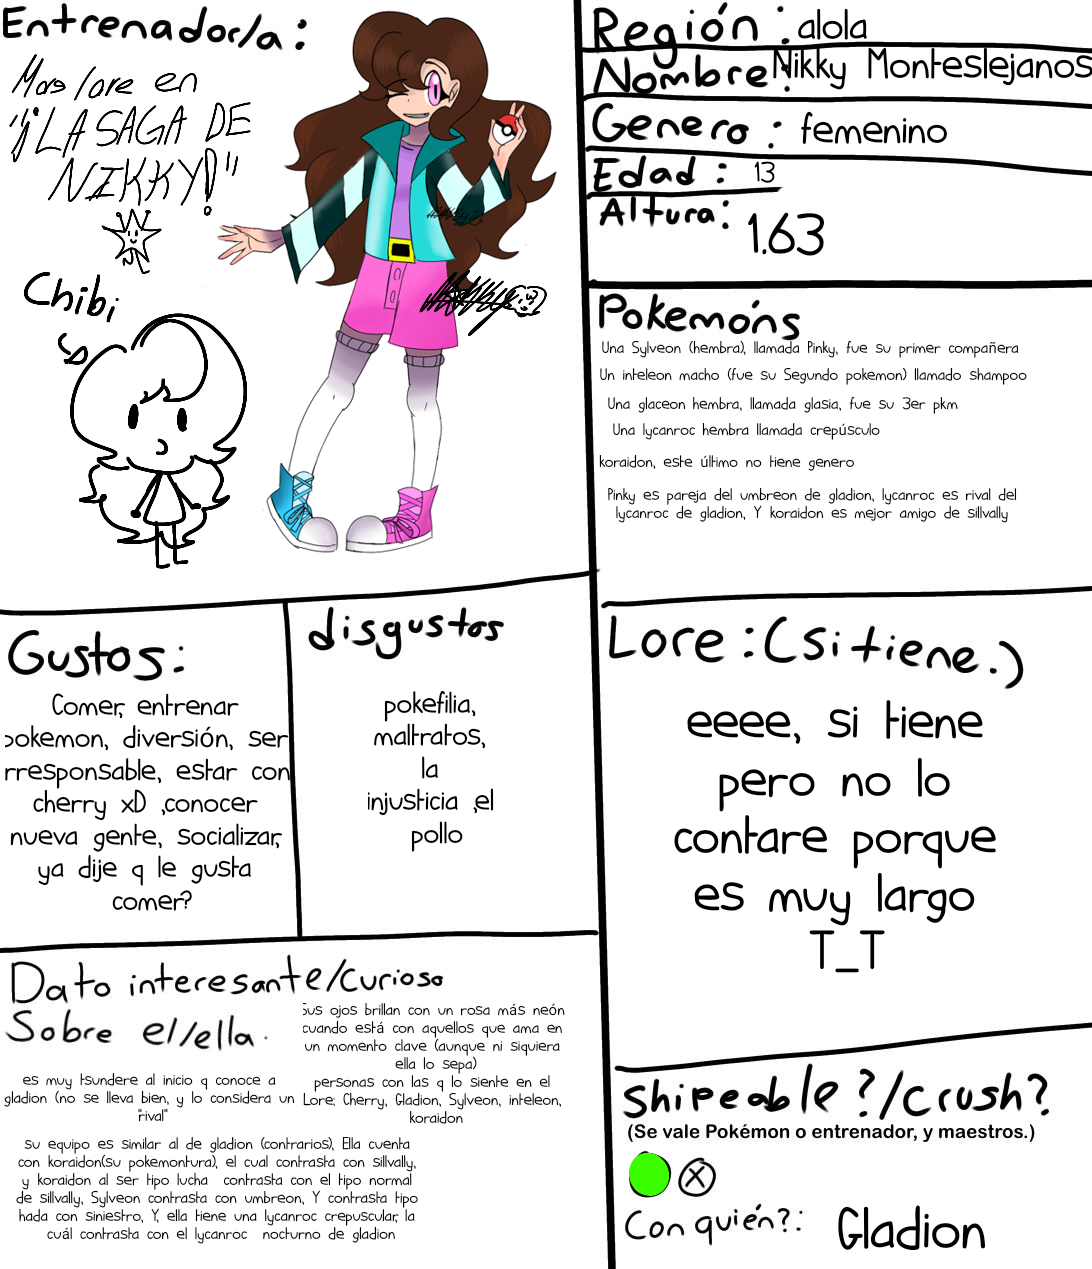 Entrenador/a:
Mas lore en
"¡LA SAGA DE
NIKKY!"
Chibi
Región : alola
Nombre: Nikky Monteslejanos
Genero : femenino
Edad : 13
Altura: 1.63
Pokemóns
Una Sylveon (hembra), llamada Pinky, fue su primer compañera
Un inteleon macho (fue su Segundo pokemon) llamado shampoo
Una glaceon hembra, llamada glasia, fue su 3er pkm
Una lycanroc hembra llamada crepúsculo
koraidon, este último no tiene genero
Pinky es pareja del umbreon de gladion, lycanroc es rival del
lycanroc de gladion, Y koraidon es mejor amigo de sillvally
Gustos:
Comer, entrenar
pokemon, diversión, ser
rresponsable, estar con
cherry xD ,conocer
nueva gente, socializar,
ya dije q le gusta
comer?
disgustos
pokefilia,
maltratos,
la
injusticia ,el
pollo
Lore : (si tiene.)
eeee, si tiene
pero no lo
contare porque
es muy largo
T_T
Dato interesante/curioso
Sobre el/ella.
es muy tsundere al inicio q conoce a
gladion (no se lleva bien, y lo considera un
"rival"
Sus ojos brillan con un rosa más neón
cuando está con aquellos que ama en
un momento clave (aunque ni siquiera
ella lo sepa)
personas con las q lo siente en el
Lore; Cherry, Gladion, Sylveon, inteleon,
koraidon
su equipo es similar al de gladion (contrarios), Ella cuenta
con koraidon(su pokemontura), el cual contrasta con sillvally,
y koraidon al ser tipo lucha contrasta con el tipo normal
de sillvally, Sylveon contrasta con umbreon, Y contrasta tipo
hada con siniestro, Y, ella tiene una lycanroc crepuscular, la
cuál contrasta con el lycanroc nocturno de gladion
shipeable ?/crush?
(Se vale Pokémon o entrenador, y maestros.)
X
Con quién?: Gladion